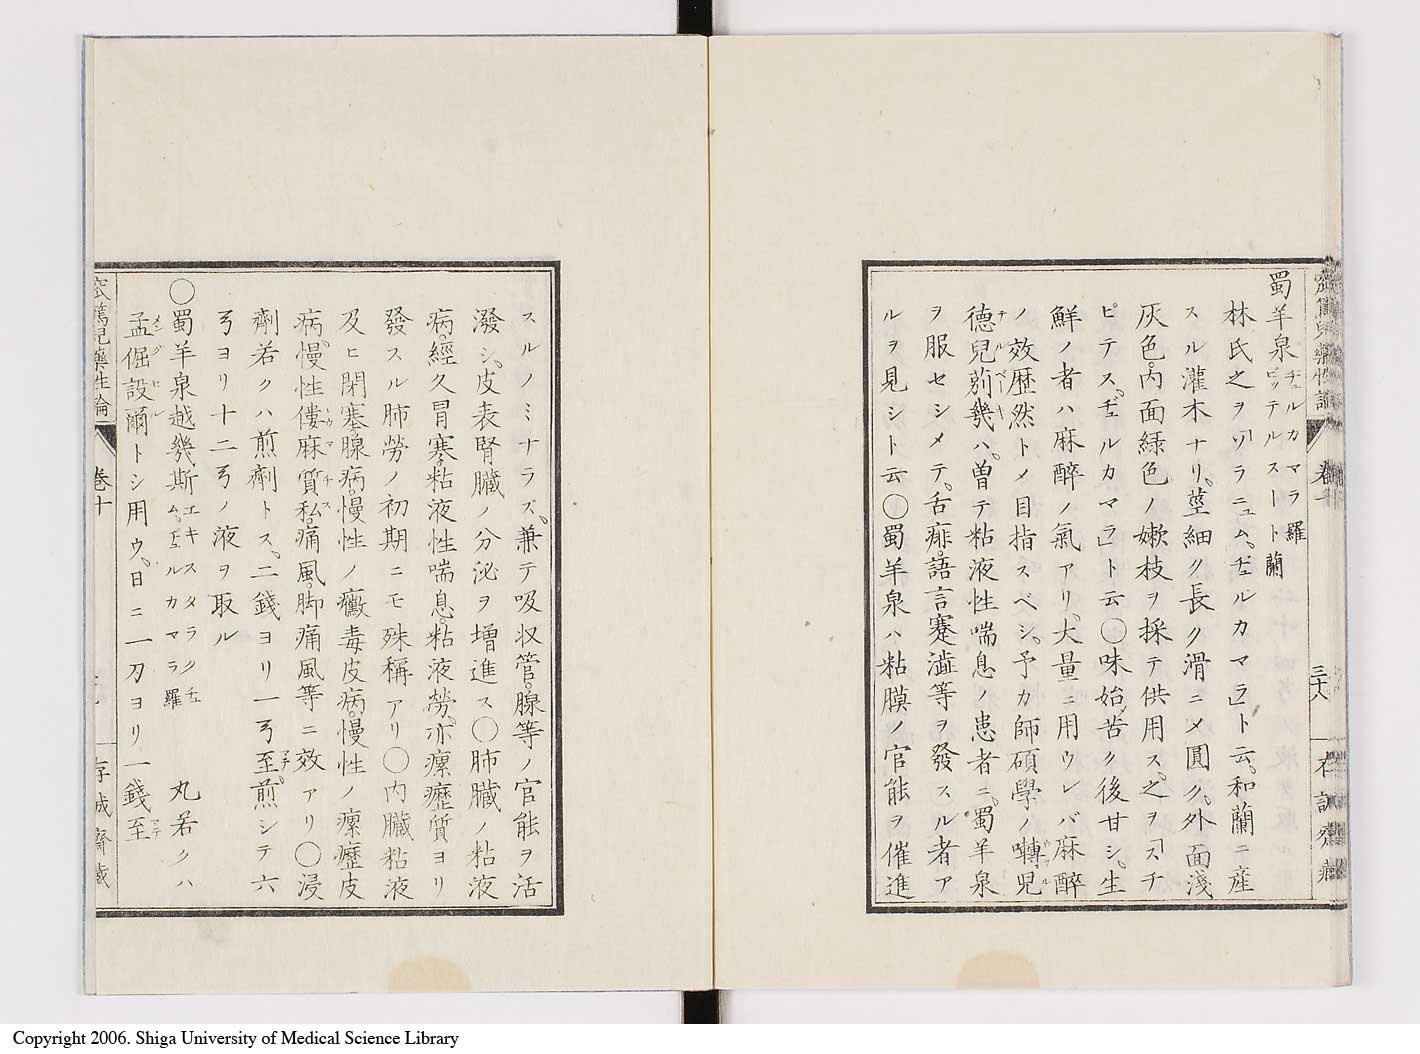 蜀羊泉 ヂュルカマラ 羅 ビッテルスート 蘭
林氏之ヲ「ソラニュム、ヂュルカマラ」ト云。和蘭ニ産
スル灌木ナリ。莖細ク長ク滑ニメ圓ク、外面淺
灰色。内面緑色ノ嫰枝ヲ採テ供用ス。之ヲ「スチ
ピテス、ヂュルカマラ」ト云〇味始苦ク後甘シ。生
鮮ノ者ハ麻醉ノ氣アリ。大量ニ用ウレバ麻醉
ノ效歴然トメ目指スベシ。予カ師碩學ノ囀児
德兒莂幾ハ。曽テ粘液性喘息ノ患者ニ。蜀羊泉
ヲ服セシメテ。舌痱。語言蹇澁等ヲ發スル者ア
ルヲ見シト云〇蜀羊泉ハ粘膜ノ官能ヲ催進
三十八
スルノミナラズ。兼テ吸収管。腺等ノ官能ヲ活
潑シ、皮表腎臓ノ分泌ヲ増進ス〇肺臓ノ粘液
病。經久冒塞。粘液性喘息。粘液勞。亦瘰癧質ヨリ
發スル肺勞ノ初期ニモ殊稱アリ〇内臓粘液
及ヒ閉塞。腺病。慢性ノ癥毒皮病。慢性ノ瘰癧皮
病。慢性僂麻質私。痛風。脚痛風等ニ效アリ〇浸
劑若クハ煎劑トス。二錢ヨリ一ㄢ至。煎シテ六
ㄢヨリ十二ㄢノ液ヲ取ル
〇蜀羊泉越幾斯 エキスタラクチュム、ヂュルカマラ 羅 丸若クハ
孟倔設爾トシ用ウ。日ニ一刀ヨリ一錢至
窊篤兒藥性論
卷十
存誠齋藏